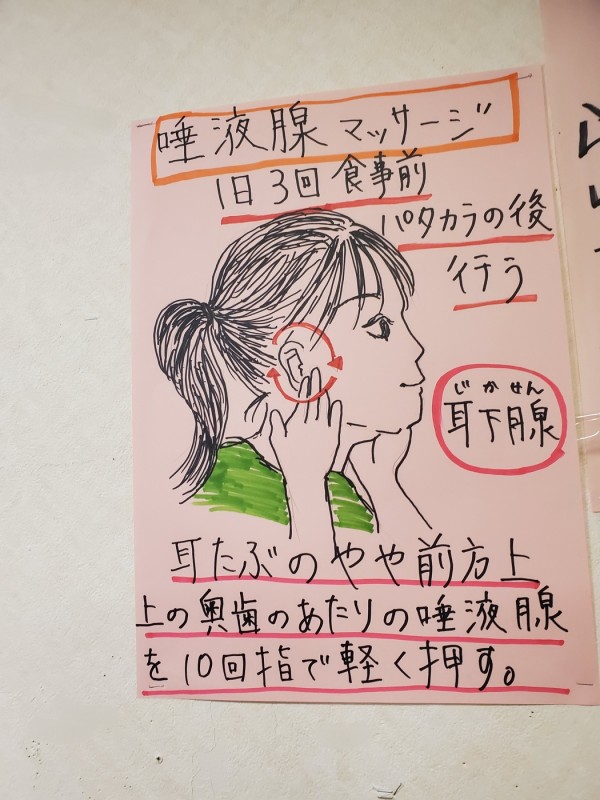 唾液腺マッサージ
1日3回食事前
パタカラの後
行う
じかせん
耳下腺
耳たぶのやや前方上
上の奥歯のあたりの唾液腺
を10回指で軽く押す。